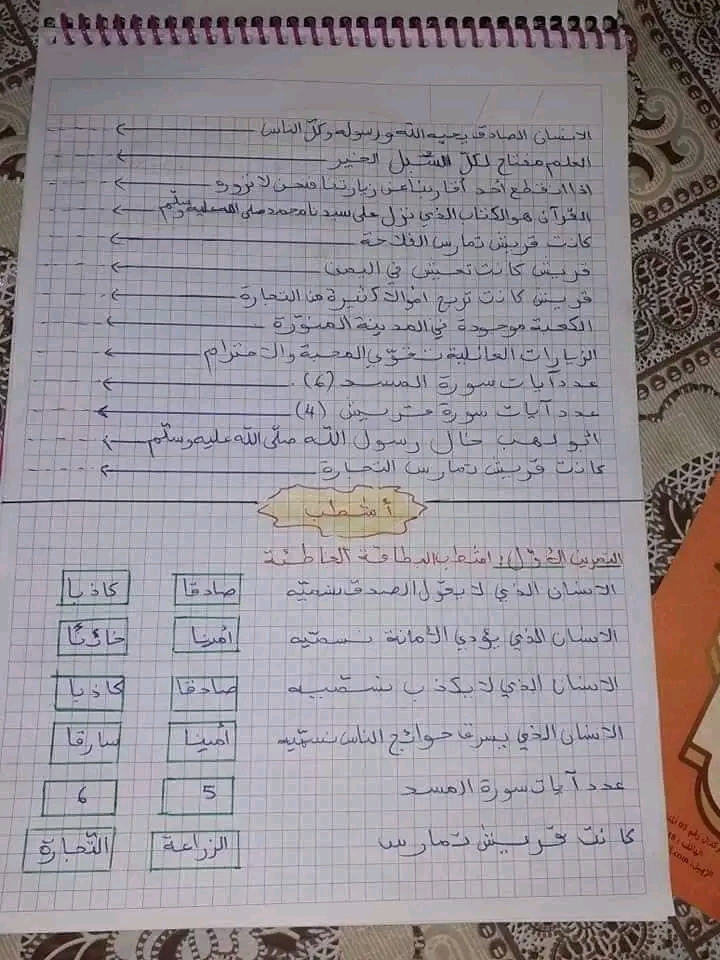 الانسان الصادق يحبه الله ورسوله وكل الناس
العلم مفتاح لكل السّبل الخير
اذا انقطع احد أقاربنا عن زيارتنا فنحن لا نزوره
القرآن هو الكتاب الذي نزل على سيدنا محمد صلى الله عليه وسلّم
كانت قريش تمارس الفلاحة
قريش كانت تعيش في اليمن
قريش كانت تربح اموالا كثيرة من التجارة
الكعبة موجودة في المدينة المنوّرة
الزيارات العائلية تقوّي المحبة والاحترام
عدد آيات سورة المسد (6).
عدد آيات سورة قريش (4)
ابو لهب خال رسول الله صلّى الله عليه وسلّم
كانت قريش تمارس التجارة
أشطب
التمرين الاوّل: اشطب البطاقة الخاطئة
الانسان الذي لا يقول الصدق نسمّيه صادقا كاذبا
الانسان الذي يؤدي الأمانة نسمّيه امينا خائنًا
الانسان الذي لا يكذب نسميه صادقا كاذبا
الانسان الذي يسرق حوائج الناس نسمّيه أمينا سارقا
عدد آيات سورة المسد 5 6
كانت قريش تمارس الزراعة التّجارة